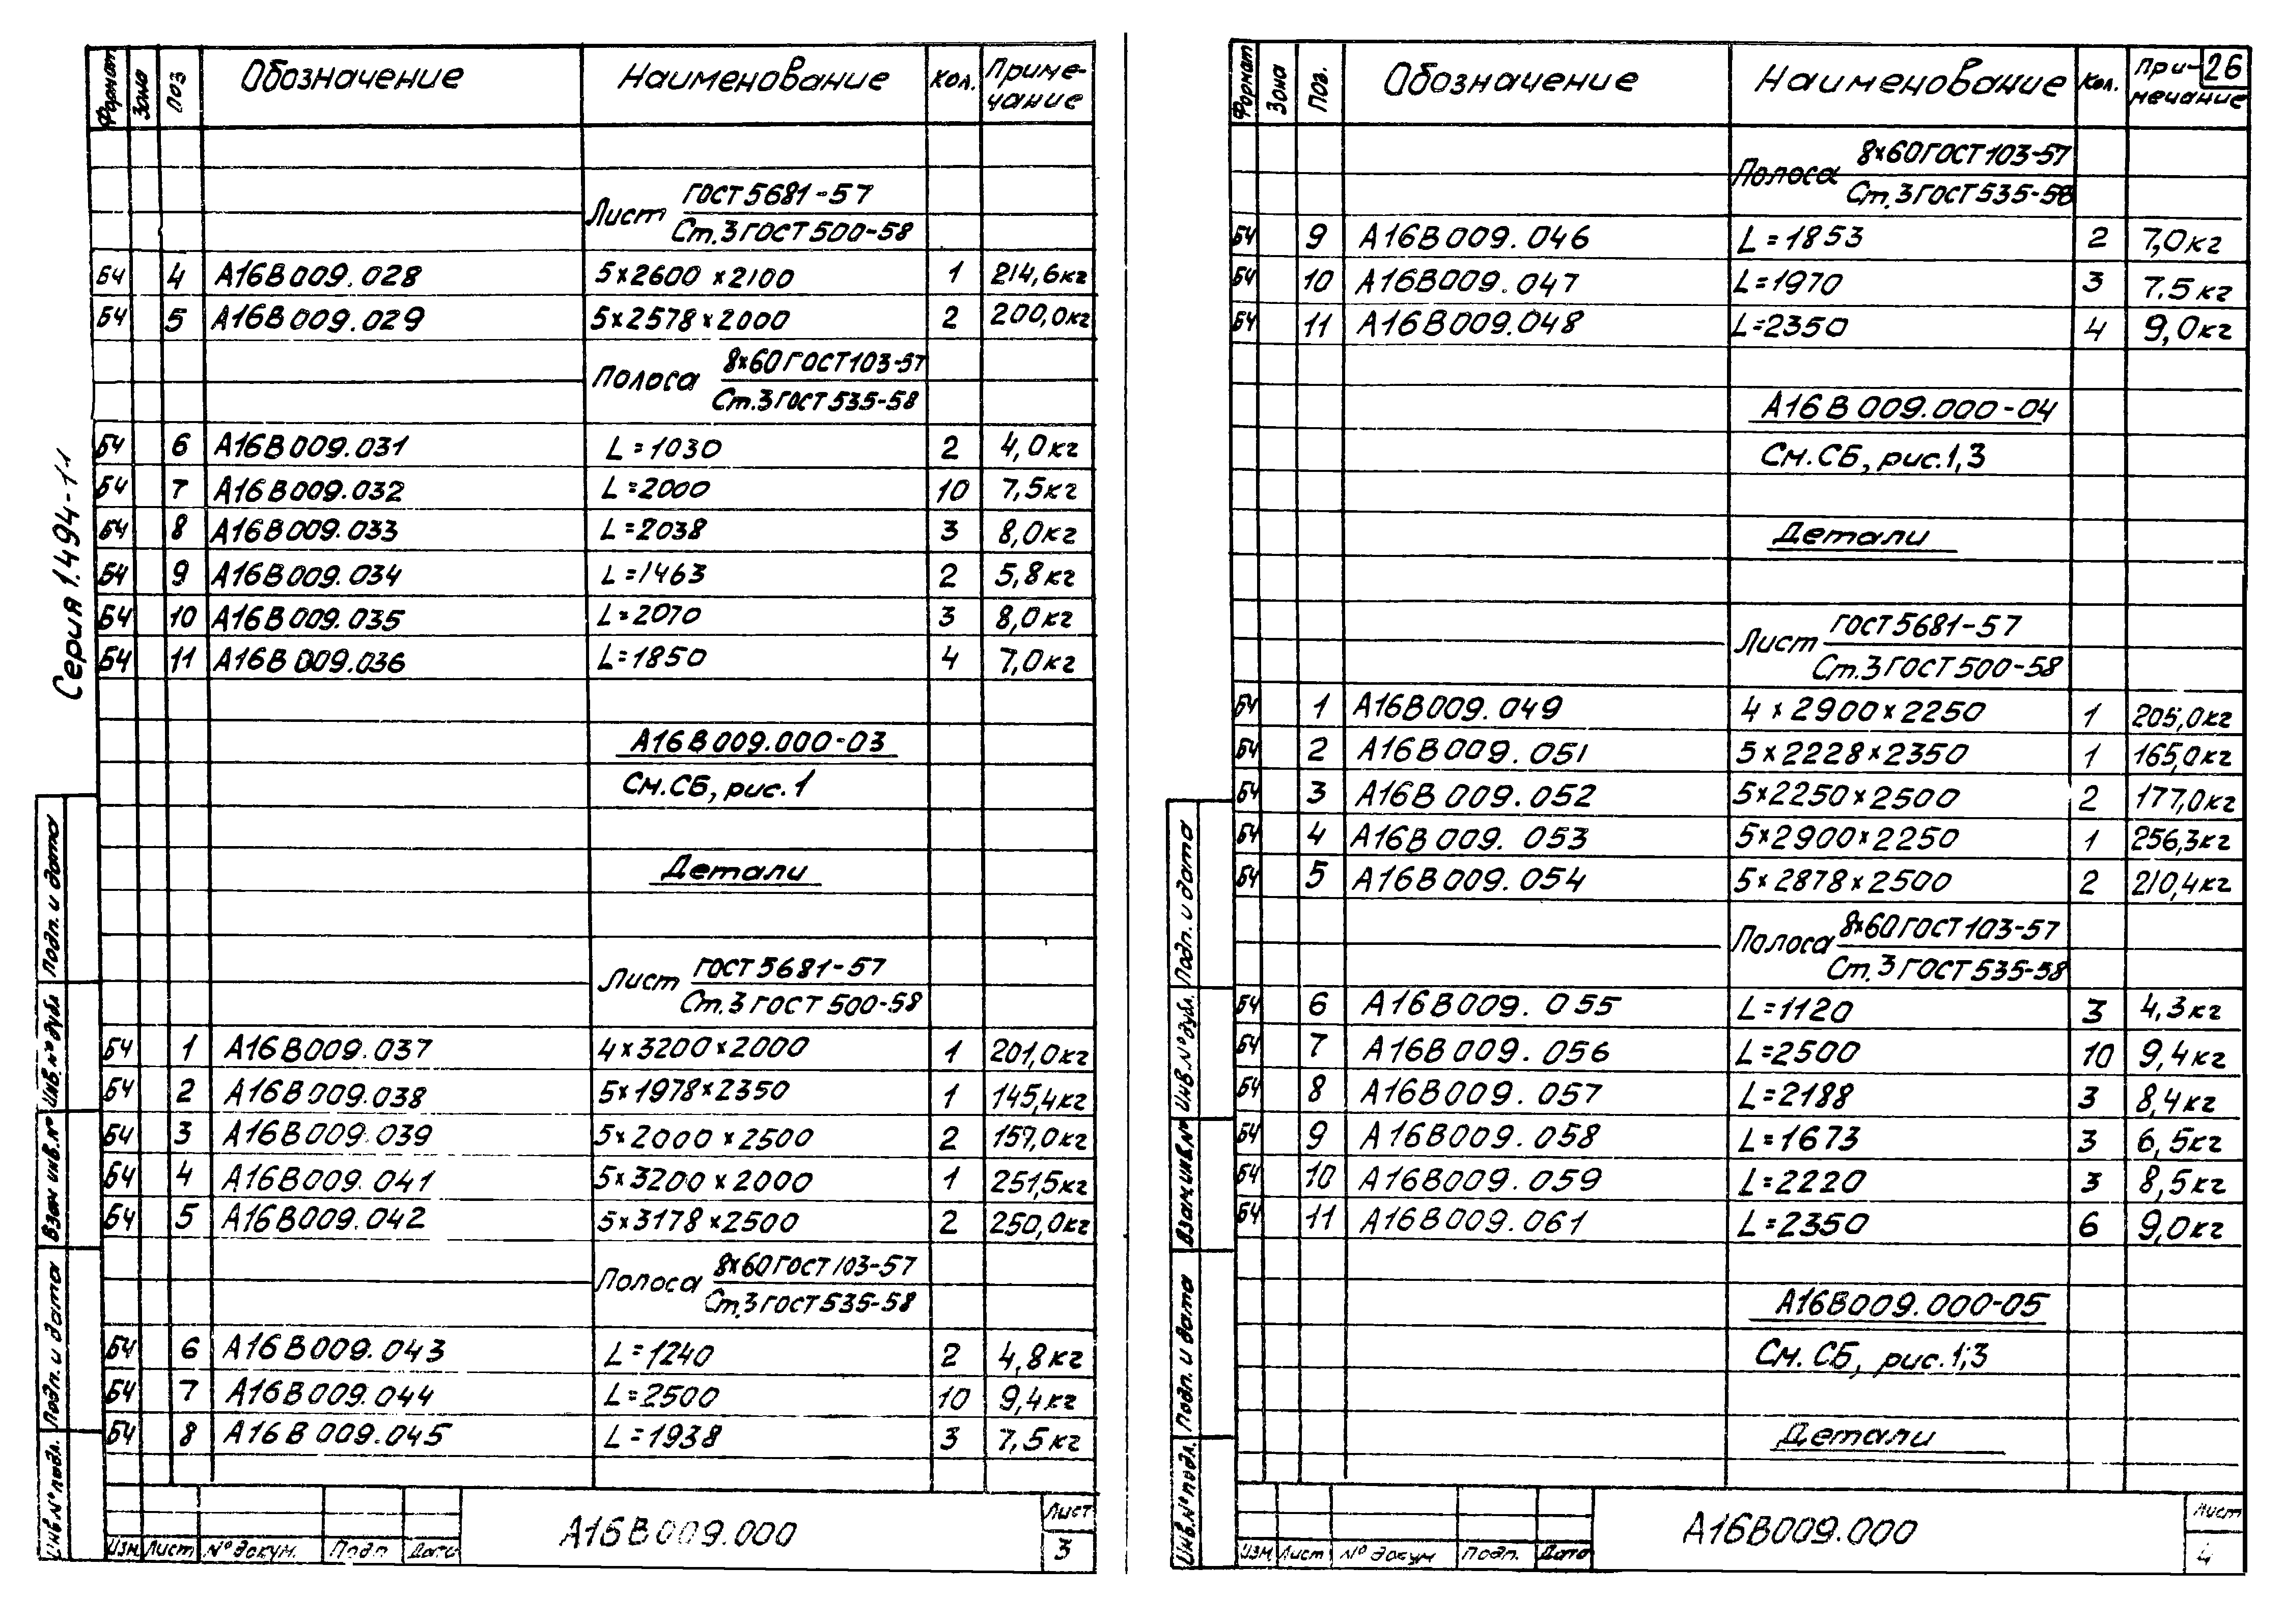 Серия 1.494-11
Формат Зона Поз Обозначение Наименование Кол. Приме-
чание
Лист ГОСТ 5681-57
Ст.3 ГОСТ 500-58
БЧ 4 А16В009.028 5×2600×2100 1 214,6кг
БЧ 5 А16В009.029 5×2578×2000 2 200,0кг
Полоса 8×60 ГОСТ 103-57
Ст.3 ГОСТ 535-58
БЧ 6 А16В009.031 L=1030 2 4,0кг
БЧ 7 А16В009.032 L=2000 10 7,5кг
БЧ 8 А16В009.033 L=2038 3 8,0кг
БЧ 9 А16В009.034 L=1463 2 5,8кг
БЧ 10 А16В009.035 L=2070 3 8,0кг
БЧ 11 А16В009.036 L=1850 4 7,0кг
А16В009.000-03
См.СБ, рис.1
Детали
Лист ГОСТ 5681-57
Ст.3 ГОСТ 500-58
БЧ 1 А16В009.037 4×3200×2000 1 201,0кг
БЧ 2 А16В009.038 5×1978×2350 1 145,4кг
БЧ 3 А16В009.039 5×2000×2500 2 157,0кг
БЧ 4 А16В009.041 5×3200×2000 1 251,5кг
БЧ 5 А16В009.042 5×3178×2500 2 250,0кг
Полоса 8×60 ГОСТ 103-57
Ст.3 ГОСТ 535-58
БЧ 6 А16В009.043 L=1240 2 4,8кг
БЧ 7 А16В009.044 L=2500 10 9,4кг
БЧ 8 А16В009.045 L=1938 3 7,5кг
Инв.№подл. Подп. и дата Взам инв.№ Инв.№дубл Подп. и дата
Изм Лист № докум. Подп Дата
А16В009.000
Лист
3
26
Формат Зона Поз. Обозначение Наименование Кол. При-
мечание
Полоса 8×60 ГОСТ 103-57
Ст.3 ГОСТ 535-58
БЧ 9 А16В009.046 L=1853 2 7,0кг
БЧ 10 А16В009.047 L=1970 3 7.5кг
БЧ 11 А16В009.048 L=2350 4 9,0кг
А16В009.000-04
См.СБ, рис.1,3
Детали
Лист ГОСТ 5681-57
Ст.3 ГОСТ 500-58
БЧ 1 А16В009.049 4×2900×2250 1 205,0кг
БЧ 2 А16В009.051 5×2228×2350 1 165,0кг
БЧ 3 А16В009.052 5×2250×2500 2 177,0кг
БЧ 4 А16В009.053 5×2900×2250 1 256,3кг
БЧ 5 А16В009.054 5×2878×2500 2 210,4кг
Полоса 8×60 ГОСТ 103-57
Ст.3 ГОСТ 535-58
БЧ 6 А16В009.055 L=1120 3 4,3кг
БЧ 7 А16В009.056 L=2500 10 9,4кг
БЧ 8 А16В009.057 L=2188 3 8,4кг
БЧ 9 А16В009.058 L=1673 3 6,5кг
БЧ 10 А16В009.059 L=2220 3 8,5кг
БЧ 11 А16В009.061 L=2350 6 9,0кг
А16В009.000-05
См. СБ, рис.1,3
Детали
Инв.№подл. Подп. и дата Взам.инв.№ Инв.№дубл. Подп. и дата
Изм Лист № докум Подп. Дата
А16В009.000
Лист
4